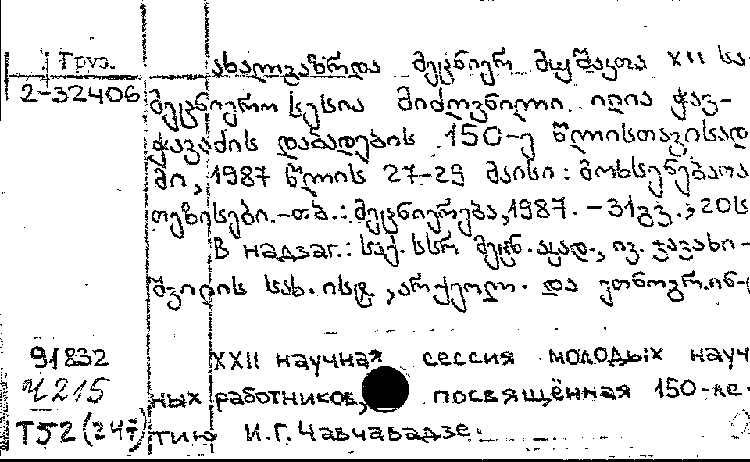 Груз.
2-32406
ახალგაზრდა მეცნიერ მუშაკთა XII სა-
მეცნიერო სესია მიძღვნილი ილია ჭავ-
ჭავაძის დაბადების 150-ე წლისთავისად
მი, 1987 წლის 27-29 მაისი: მოხსენებათა
თეზისები.-თბ.: მეცნიერება, 1987. - 31გვ.; 20ს
В надзаг.: საქ. სსრ მეცნ. აკად., ივ. ჯავახი-
შვილის სახ. ისტ., არქეოლ. და ეთნოგრ. ინ-
91832
XXII научная сессия молодых науч
Ч215
ных работников, посвящённая 150-ле-
Т52(247)
тию И.Г. Чавчавадзе.